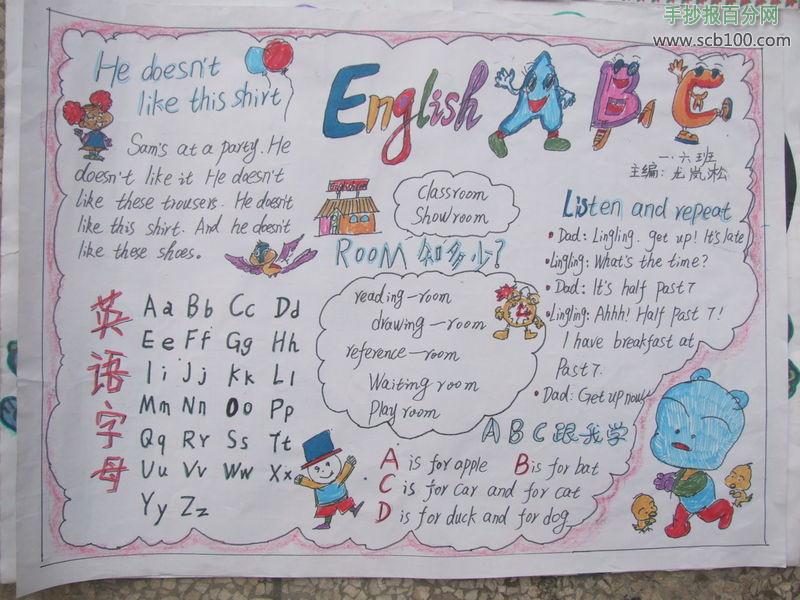 手抄报百分网
www.scb100.com
He doesn't
like this shirt
Sam's at a party. He
doesn't like it He doesn't
like these trousers. He doesn't
like this shirt. And he doesn't
like these shoes.
English A B C
一.六班
主编:龙岚淞
Classroom
Showroom
ROOM 知多少?
reading-room
drawing-room
reference-room
Waiting room
Play room
Listen and repeat
Dad: Lingling. get up! It's late
Lingling: What's the time?
Dad: It's half past 7
Lingling: Ahhh! Half Past 7!
I have breakfast at
Past 7.
Dad: Get up now!
英语字母
Aa Bb Cc Dd
Ee Ff Gg Hh
Ii Jj Kk Ll
Mm Nn Oo Pp
Qq Rr Ss Tt
Uu Vv Ww Xx
Yy Zz
A B C 跟我学
A is for apple B is for bat
C is for car and for cat
D is for duck and for dog